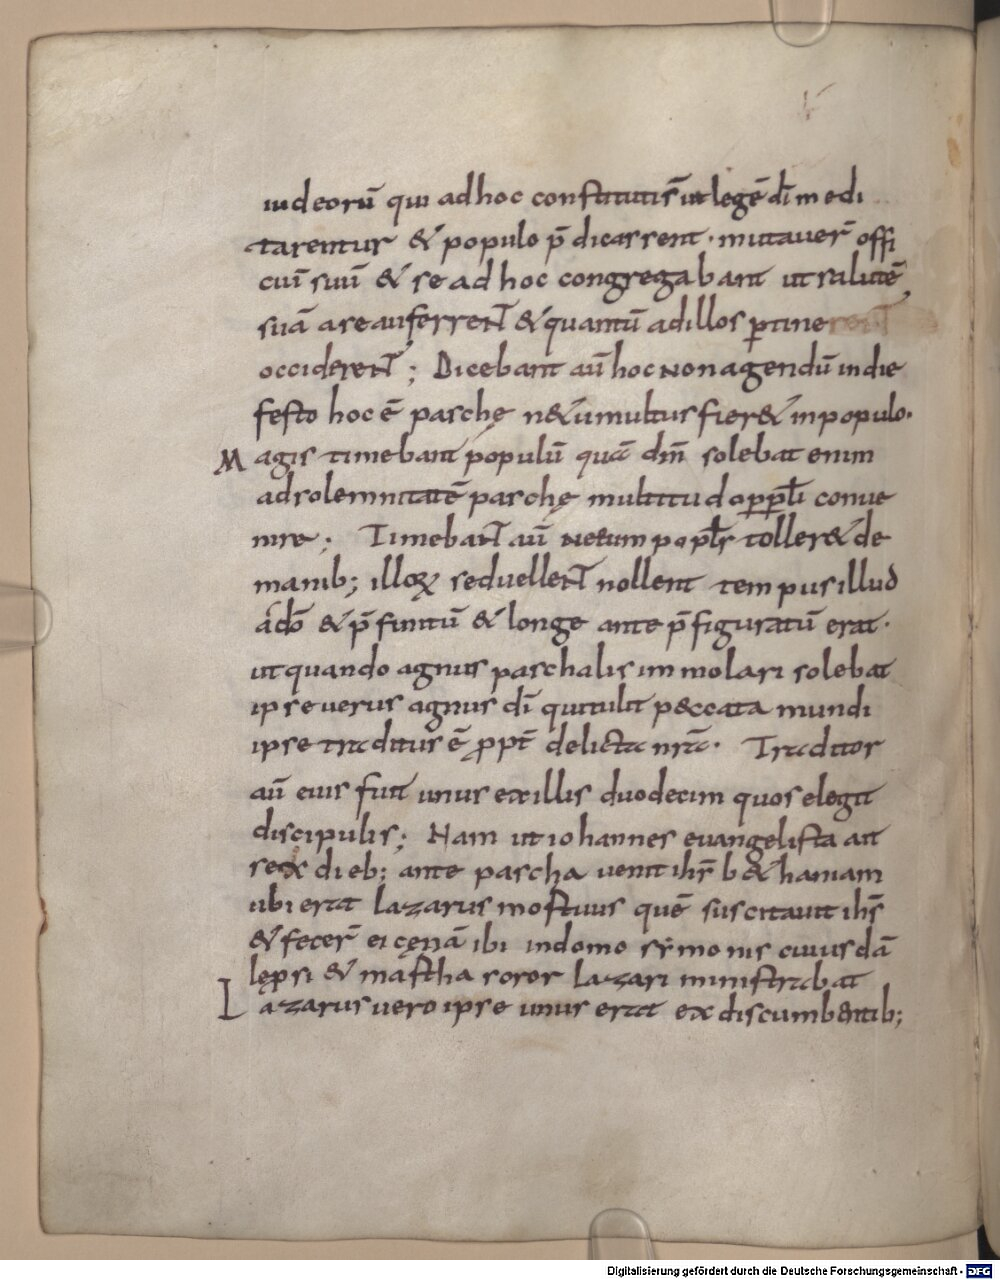 iudeorū qui ad hoc constitutis̄ ut legē dī medi
tarentur & populo p̄dicarent · mutauer̄ offi
ciū suū & se ad hoc congregabant ut salutē
suā a se auferrent & quantū ad illos ꝑtinerent
occiderent ; Dicebant aū hoc non agendū in die
festo hoc ē paschę n&umultus fier& in populo ·
Magis timebant populū quā dn̄m solebat enim
ad solemnitatē paschę multitudo ꝑpl̄i conue
nire ; Timebant aū ne eum popl̄s toller& de
manib; illoꝝ sed uellent nollent tempus illud
a dō & p̄finitū & longe ante p̄figuratū erat ·
ut quando agnus paschalis immolari solebat
ipse uerus agnus dī qui tulit peccata mundi
ipse traditus ē ꝓpt̄ delicta nr̄a · Traditor
aū eius fuit unus ex illis duodecim quos elegit
discipulis ; Nam ut iohannes euangelista ait
sex dieb; ante pascha uenit ih̄s b&haniam
ubi erat lazarus mortuus quē suscitauit ih̄s
& fecer̄ ei cęnā ibi in domo symonis cuiusdā
lęprsi & martha soror lazari ministrabat
Lazarus uero ipse unus erat ex discumbentib;
Digitalisierung gefördert durch die Deutsche Forschungsgemeinschaft - DFG